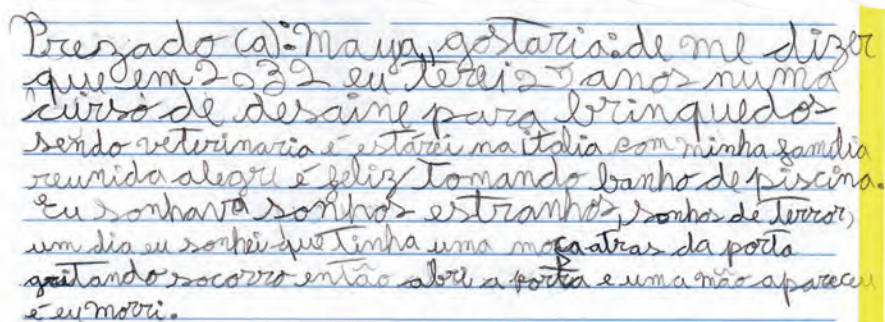 Prezado (a): Maya, gostaria: de me dizer
que em 2032 eu terei anos numa
curso de desaine para brinquedos
sendo veterinaria é estarei na italia com minha familia
reunida alegre é feliz tomando banho de piscina.
Eu sonhava sonhos estranhos, sonhos de terror,
um dia eu sonhei que tinha uma moça atras da porta
gritando socorro então abri a porta e uma mão apareceu
é eu morri.